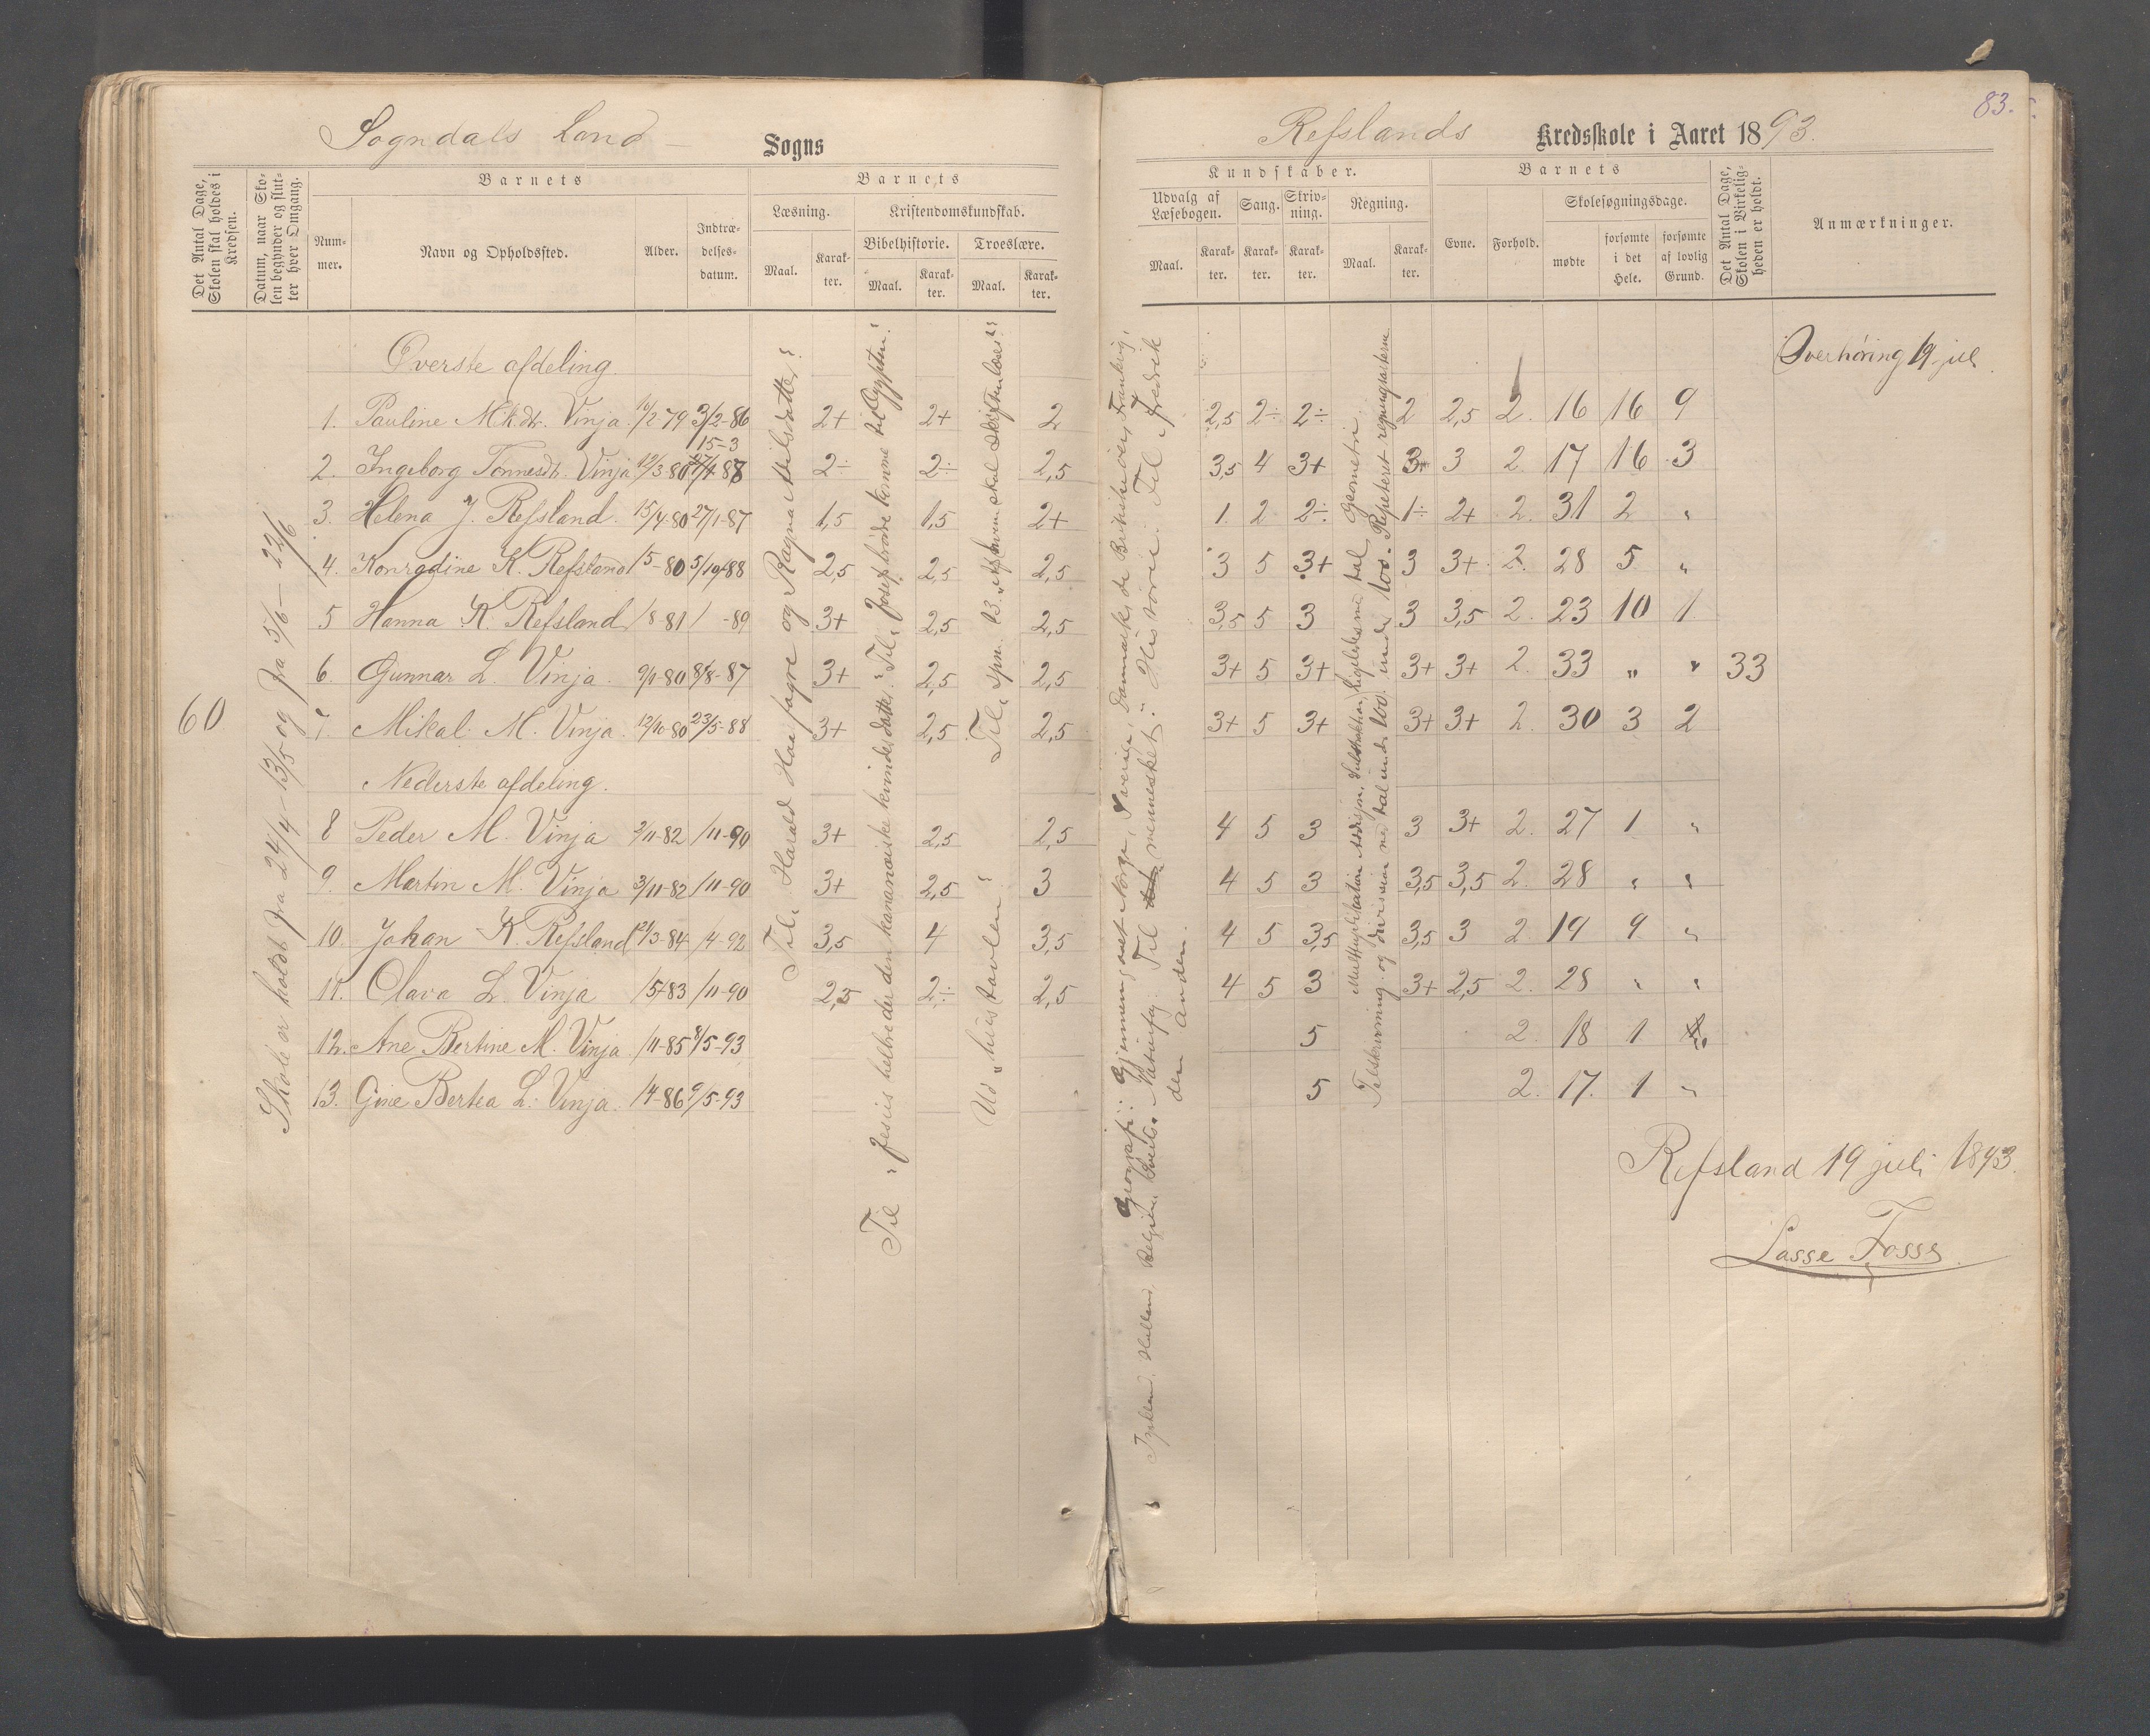 Sogndals Land – Sogns
Refslands Kredsskole i Aaret 1893.
83.
Det Antal Dage, Skolen skal holdes i Kredsen.
Datum, naar Skolen begynder og slutter hver Omgang.
Barnets
Nummer.
Navn og Opholdssted.
Alder.
Indtrædelsesdatum.
Barnets
Læsning.
Maal.
Karakter.
Kristendomskundskab.
Bibelhistorie.
Maal.
Karakter.
Troeslære.
Maal.
Karakter.
Kundskaber.
Udvalg af Læsebogen.
Maal.
Karakter.
Sang.
Karakter.
Skrivning.
Karakter.
Regning.
Maal.
Karakter.
Barnets
Evne.
Forhold.
Skolesøgningsdage.
mødte
forsømte i det Hele.
forsømte af lovlig Grund.
Det Antal Dage, Skolen i Virkeligheden er holdt.
Anmærkninger.
Øverste afdeling. Overhøring 19 juli
1. Pauline M.k.dtr. Vinja. 16/2 79 3/2-86 2+ 2+ 2 2,5 2÷ 2÷ 2 2,5 2. 16 16 9
15-3
2. Ingeborg Tønnesdt. Vinja 12/3 80 27/4-87 2÷ 2÷ 2,5 3,5 4 3+ 3+ 3 2. 17 16 3
3. Helena J. Refsland. 15/4-80 27/1-87 1,5 1,5 2+ 1. 2 2÷ 1÷ 2+ 2. 31 2 "
4. Konradine K. Refsland 1/5-80 5/10-88 2,5 2,5 2,5 3 5 3+ 3 3+ 2. 28 5 "
5 Hanna K. Refsland /8-81 / -89 3+ 2,5 2,5 3,5 5 3 3 3,5 2. 23 10 1
6. Gunnar L. Vinja. 9/1-80 8/8-87 3+ 2,5 2,5 3+ 5 3+ 3+ 3+ 2. 33 " " 33
60
7. Mikal M. Vinja. 12/10-80 23/5-88 3+ 2,5 2,5 3+ 5 3+ 3+ 3+ 2. 30 3 2
Nederste afdeling.
8 Peder M. Vinja 2/11-82 /11-90 3+ 2,5 2,5 4 5 3 3 3+ 2. 27 1 "
9. Martin M. Vinja 3/11-82 /11-90 3+ 2,5 3 4 5 3 3,5 3,5 2. 28 " "
10. Johan K. Refsland 21/3-84 /4-92 3,5 4 3,5 4 5 3,5 3,5 3 2 19 9 "
11. Olava L. Vinja /5-83 /11-90 2,5 2÷ 2,5 4 5 3 3+ 2,5 2. 28 " "
12. Ane Bertine M. Vinja /11-85 8/5-93 5 2. 18 1 "
13. Gine Bertea L. Vinja. /4-86 9/5-93 5 2. 17. 1 "
Skole er holdt fra 24/4 – 13/5 og fra 5/6 – 22/6
Til "Harald Haarfagre og Ragna Adilsdatter."
Til "Jesus helbreder den kananæiske kvindes datter." Til "Josefs brødre komme til Ægypten."
Ud "hustavlen". Til spm.
Geografi: Gjennemgaaet Norge, Sverige, Danmark, de Britiske øer, Frankrig,
Tyskland, Holland, Belgien, Sveits. Naturfag: Til mennesket. Historie: Til "Fredrik
den anden.
Multiplikation Addisjon, Substraktion, ligebenævnte tal. Geometri.
Talskrivning og division med tal under 100. Repeteret regningsarterne
Refsland 19 juli 1893.
Lasse Fosss